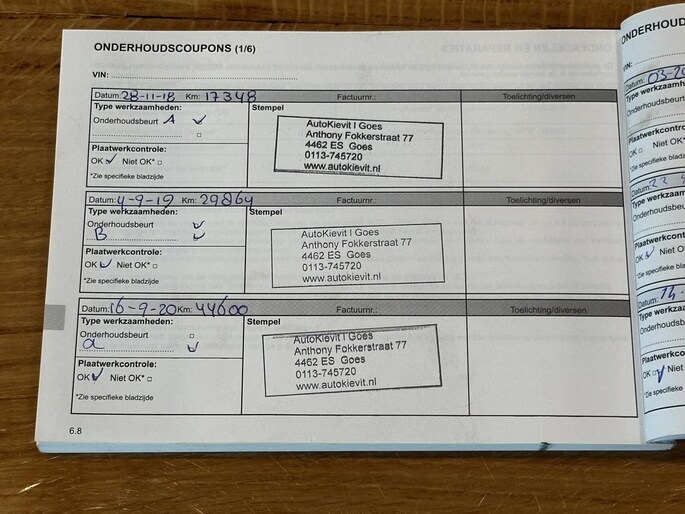 ONDERHOUDSCOUPONS (1/6)
VIN:
Datum: 28-11-18 Km: 17348 Factuurnr.: Toelichting/diversen
Type werkzaamheden: Stempel
Onderhoudsbeurt A
AutoKievit I Goes
Anthony Fokkerstraat 77
4462 ES Goes
0113-745720
www.autokievit.nl
Plaatwerkcontrole:
OK Niet OK*
*Zie specifieke bladzijde
Datum: 4-9-19 Km: 29864 Factuurnr.: Toelichting/diversen
Type werkzaamheden: Stempel
Onderhoudsbeurt
B
AutoKievit I Goes
Anthony Fokkerstraat 77
4462 ES Goes
0113-745720
www.autokievit.nl
Plaatwerkcontrole:
OK Niet OK*
*Zie specifieke bladzijde
Datum: 16-9-20 Km: 44600 Factuurnr.: Toelichting/diversen
Type werkzaamheden: Stempel
Onderhoudsbeurt
a
AutoKievit I Goes
Anthony Fokkerstraat 77
4462 ES Goes
0113-745720
www.autokievit.nl
Plaatwerkcontrole:
OK Niet OK*
*Zie specifieke bladzijde
6.8
ONDERHOUDSC
VIN:
Datum: 03-20
Type werkzaamh
Onderhoudsbeur
Plaatwerkcontrol
OK Niet OK
*Zie specifieke bladz
Datum: 22
Type werkzaamhe
Onderhoudsbeu
Plaatwerkcontr
OK Niet O
*Zie specifieke bl
Datum: 14
Type werkzaam
Onderhoudsbe
Plaatwerkco
OK Niet
*Zie specifieke